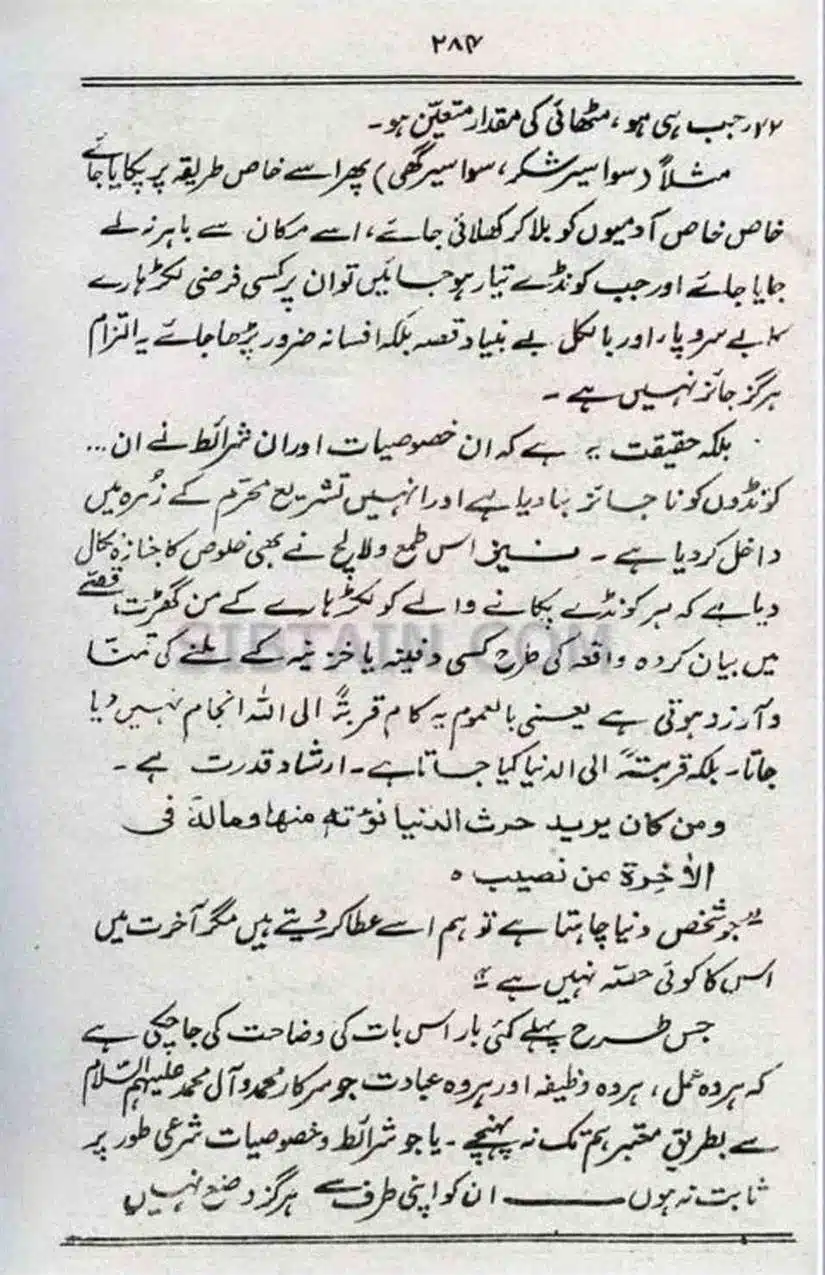 ۲۸۴
۲۲ رجب ہی ہو، مٹھائی کی مقدار متعیّن ہو۔
مثلاً (سوا سیر شکر، سوا سیر گھی) پھر اسے خاص طریقہ پر پکایا جائے
خاص خاص آدمیوں کو بلا کر کھلائی جائے، اسے مکان سے باہر نہ لے
جایا جائے اور جب کونڈے تیار ہو جائیں تو ان پر کسی فرضی لکڑہارے
کا بے سروپا، اور بالکل بے بنیاد قصہ بلکہ افسانہ ضرور پڑھا جائے یہ التزام
ہرگز جائز نہیں ہے۔
بلکہ حقیقت یہ ہے کہ ان خصوصیات اور ان شرائط نے ان ...
کونڈوں کو ناجائز بنا دیا ہے اور انہیں تشریع محرّم کے زُمرہ میں
داخل کر دیا ہے۔ نیز اس طمع و لالچ نے بھی خلوص کا جنازہ نکال
دیا ہے کہ ہر کونڈے پکانے والے کو لکڑہارے کے من گھڑت قصّے
میں بیان کردہ واقعہ کی طرح کسی دفینہ یا خزینہ کے ملنے کی تمنّا
و آرزو ہوتی ہے یعنی بالعموم یہ کام قربۃً الی اللہ انجام نہیں دیا
جاتا۔ بلکہ قربتہً الی الدنیا کیا جاتا ہے۔ ارشاد قدرت ہے۔
ومن کان یرید حرث الدنیا نؤته منھا وماله فی
الاٰخرة من نصیب ٥
"جو شخص دنیا چاہتا ہے تو ہم اسے عطا کر دیتے ہیں مگر آخرت میں
اس کا کوئی حصّہ نہیں ہے"
جس طرح پہلے کئی بار اس بات کی وضاحت کی جا چکی ہے
کہ ہر وہ عمل، ہر وہ وظیفہ اور ہر وہ عبادت جو سرکار محمد و آل محمد علیہم السّلام
سے بطریق معتبر ہم تک نہ پہنچے۔ یا جو شرائط و خصوصیات شرعی طور پر
ثابت نہ ہوں ـــــ ان کو اپنی طرف سے ہرگز وضع نہیں
SIBTAIN.COM